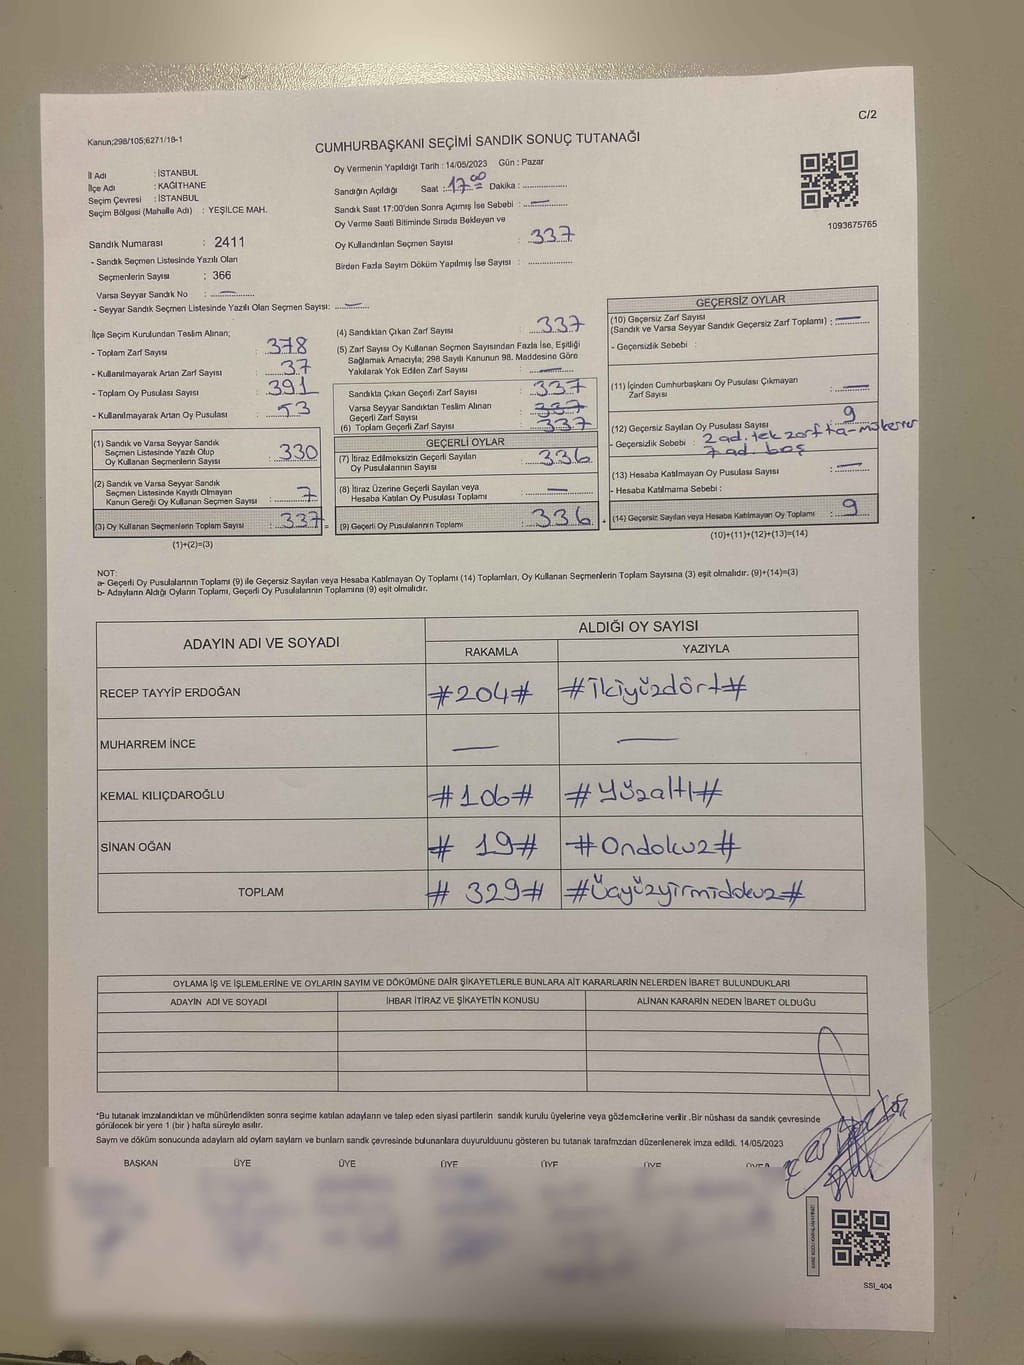 C/2
Kanun;298/105;6271/18-1
CUMHURBAŞKANI SEÇİMİ SANDIK SONUÇ TUTANAĞI
İl Adı : İSTANBUL
İlçe Adı : KAĞITHANE
Seçim Çevresi : İSTANBUL
Seçim Bölgesi (Mahalle Adı) : YEŞİLCE MAH.
Oy Vermenin Yapıldığı Tarih : 14/05/2023 Gün : Pazar
Sandığın Açıldığı Saat : 17.00 Dakika : ..................
Sandık Saat 17:00'den Sonra Açımış İse Sebebi : —
Oy Verme Saati Bitiminde Sırada Bekleyen ve
Oy Kullandırılan Seçmen Sayısı : 337
Birden Fazla Sayım Döküm Yapılmış İse Sayısı : ..................
1093675765
Sandık Numarası : 2411
- Sandık Seçmen Listesinde Yazılı Olan
Seçmenlerin Sayısı : 366
Varsa Seyyar Sandık No : —
- Seyyar Sandık Seçmen Listesinde Yazılı Olan Seçmen Sayısı: —
İlçe Seçim Kurulundan Teslim Alınan;
- Toplam Zarf Sayısı : 378
- Kullanılmayarak Artan Zarf Sayısı : 37
- Toplam Oy Pusulası Sayısı : 391
- Kullanılmayarak Artan Oy Pusulası : 53
(1) Sandık ve Varsa Seyyar Sandık
Seçmen Listesinde Yazılı Olup
Oy Kullanan Seçmenlerin Sayısı : 330
(2) Sandık ve Varsa Seyyar Sandık
Seçmen Listesinde Kayıtlı Olmayan
Kanun Gereği Oy Kullanan Seçmen Sayısı : 7
(3) Oy Kullanan Seçmenlerin Toplam Sayısı : 337 =
(1)+(2)=(3)
(4) Sandıktan Çıkan Zarf Sayısı : 337
(5) Zarf Sayısı Oy Kullanan Seçmen Sayısından Fazla İse, Eşitliği
Sağlamak Amacıyla; 298 Sayılı Kanunun 98. Maddesine Göre
Yakılarak Yok Edilen Zarf Sayısı : —
Sandıkta Çıkan Geçerli Zarf Sayısı : 337
Varsa Seyyar Sandıktan Teslim Alınan
Geçerli Zarf Sayısı : 337
(6) Toplam Geçerli Zarf Sayısı : 337
GEÇERLİ OYLAR
(7) İtiraz Edilmeksizin Geçerli Sayılan
Oy Pusulalarının Sayısı : 336
(8) İtiraz Üzerine Geçerli Sayılan veya
Hesaba Katılan Oy Pusulası Toplamı : —
(9) Geçerli Oy Pusulalarının Toplamı : 336 +
GEÇERSİZ OYLAR
(10) Geçersiz Zarf Sayısı
(Sandık ve Varsa Seyyar Sandık Geçersiz Zarf Toplamı) : —
- Geçersizlik Sebebi :
(11) İçinden Cumhurbaşkanı Oy Pusulası Çıkmayan
Zarf Sayısı : —
(12) Geçersiz Sayılan Oy Pusulası Sayısı : 9
- Geçersizlik Sebebi : 2 ad. tek zarfta-mükerrer
7 ad. boş
(13) Hesaba Katılmayan Oy Pusulası Sayısı : —
- Hesaba Katılmama Sebebi :
(14) Geçersiz Sayılan veya Hesaba Katılmayan Oy Toplamı : 9
(10)+(11)+(12)+(13)=(14)
NOT:
a- Geçerli Oy Pusulalarının Toplamı (9) ile Geçersiz Sayılan veya Hesaba Katılmayan Oy Toplamı (14) Toplamları, Oy Kullanan Seçmenlerin Toplam Sayısına (3) eşit olmalıdır. (9)+(14)=(3)
b- Adayların Aldığı Oyların Toplamı, Geçerli Oy Pusulalarının Toplamına (9) eşit olmalıdır.
ADAYIN ADI VE SOYADI
ALDIĞI OY SAYISI
RAKAMLA YAZIYLA
RECEP TAYYİP ERDOĞAN #204# #ikiyüzdört#
MUHARREM İNCE — —
KEMAL KILIÇDAROĞLU #106# #Yüzaltı#
SİNAN OĞAN # 19# #Ondokuz#
TOPLAM # 329# #Üçyüzyirmidokuz#
OYLAMA İŞ VE İŞLEMLERİNE VE OYLARIN SAYIM VE DÖKÜMÜNE DAİR ŞİKAYETLERLE BUNLARA AİT KARARLARIN NELERDEN İBARET BULUNDUKLARI
ADAYIN ADI VE SOYADI İHBAR İTİRAZ VE ŞİKAYETİN KONUSU ALINAN KARARIN NEDEN İBARET OLDUĞU
*Bu tutanak imzalandıktan ve mühürlendikten sonra seçime katılan adayların ve talep eden siyasi partilerin sandık kurulu üyelerine veya gözlemcilerine verilir .Bir nüshası da sandık çevresinde
görülecek bir yere 1 (bir ) hafta süreyle asılır.
Sayım ve döküm sonucunda adayların aldı oyların sayların ve bunların sandık çevresinde bulunanlara duyurulduunu gösteren bu tutanak tarafmzdan düzenlenerek imza edildi. 14/05/2023
BAŞKAN ÜYE ÜYE ÜYE ÜYE ÜYE
SSI_404